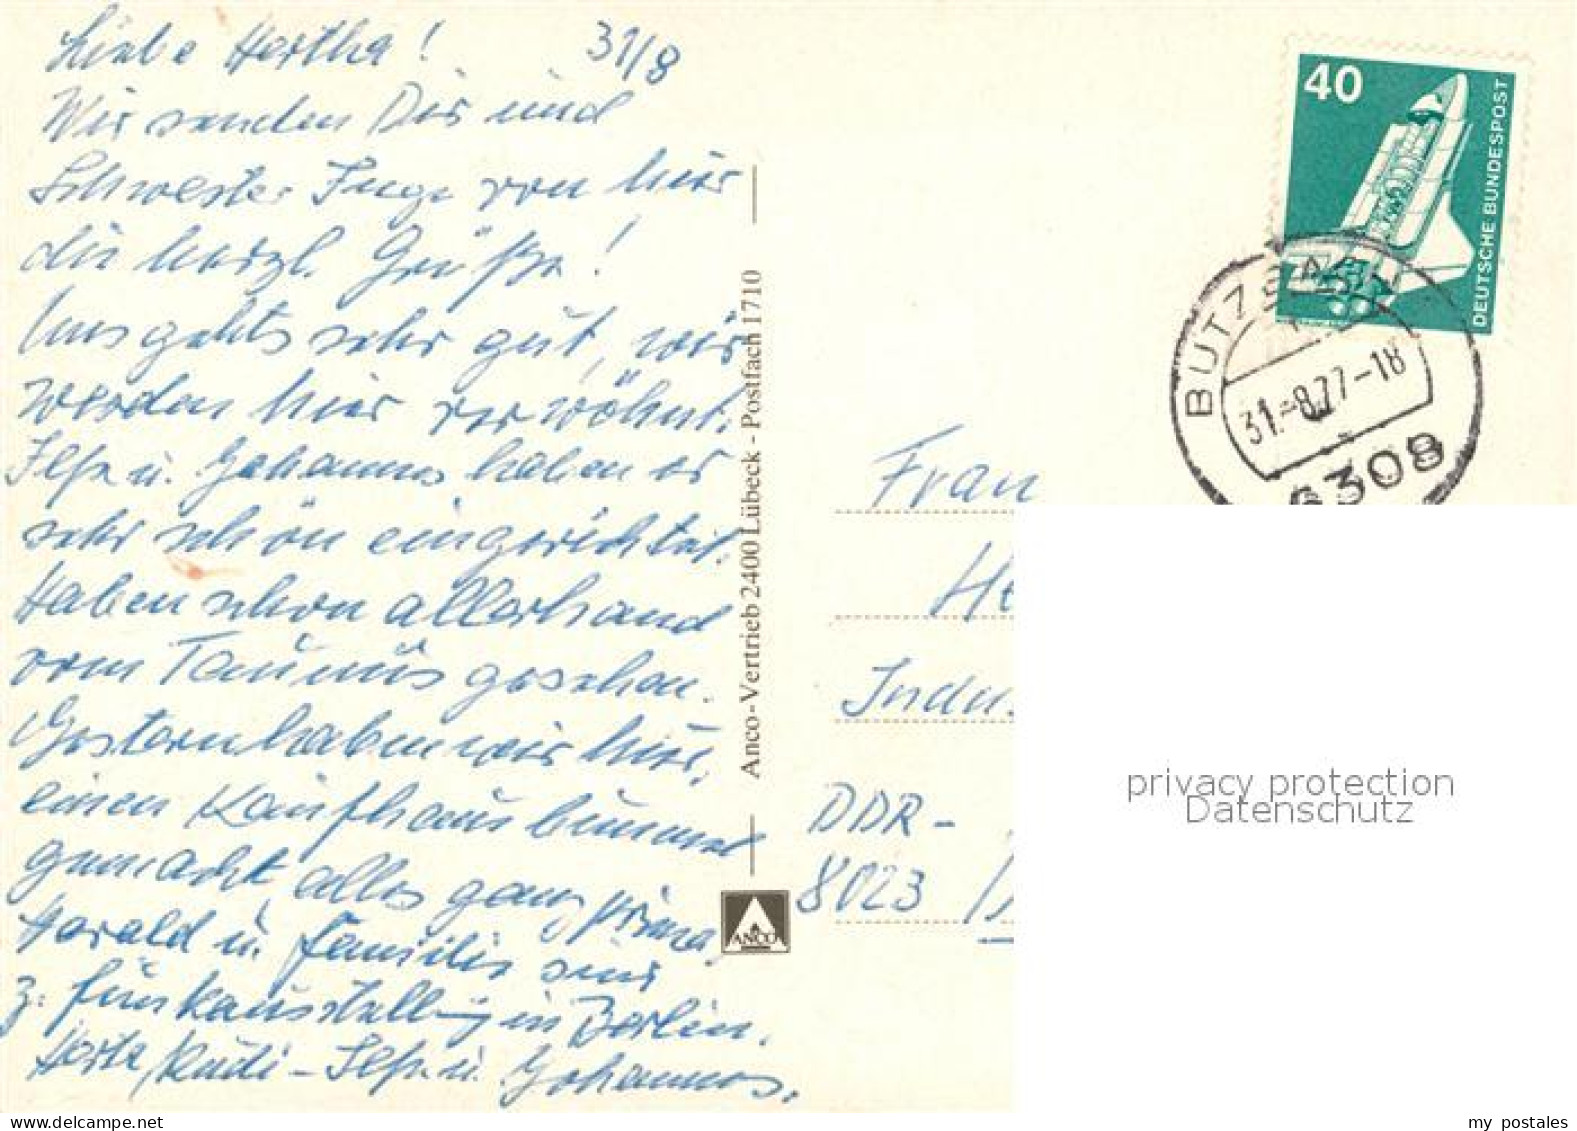 Liebe Hertha! 31/8
Wir senden Dir und
Schwester Inge von hier
die herzl. Grüße!
Uns gehts sehr gut, wir
werden hier verwöhnt.
Ilse u. Johannes haben es
sehr schön eingerichtet.
Haben schon allerhand
vom Taunus gesehen.
Gestern haben wir hier
einen Kaufhausbummel
gemacht, alles ganz prima.
Harald u. Familie sind
z. Funkausstellung in Berlin.
Rudi - Ilse u. Johannes.
Anco-Vertrieb 2400 Lübeck - Postfach 1710
ANCO
40
DEUTSCHE BUNDESPOST
BUTZBACH
31.-8.77-18
6308
Frau
He
Indu
DDR-
8023
privacy protection
Datenschutz
my postales